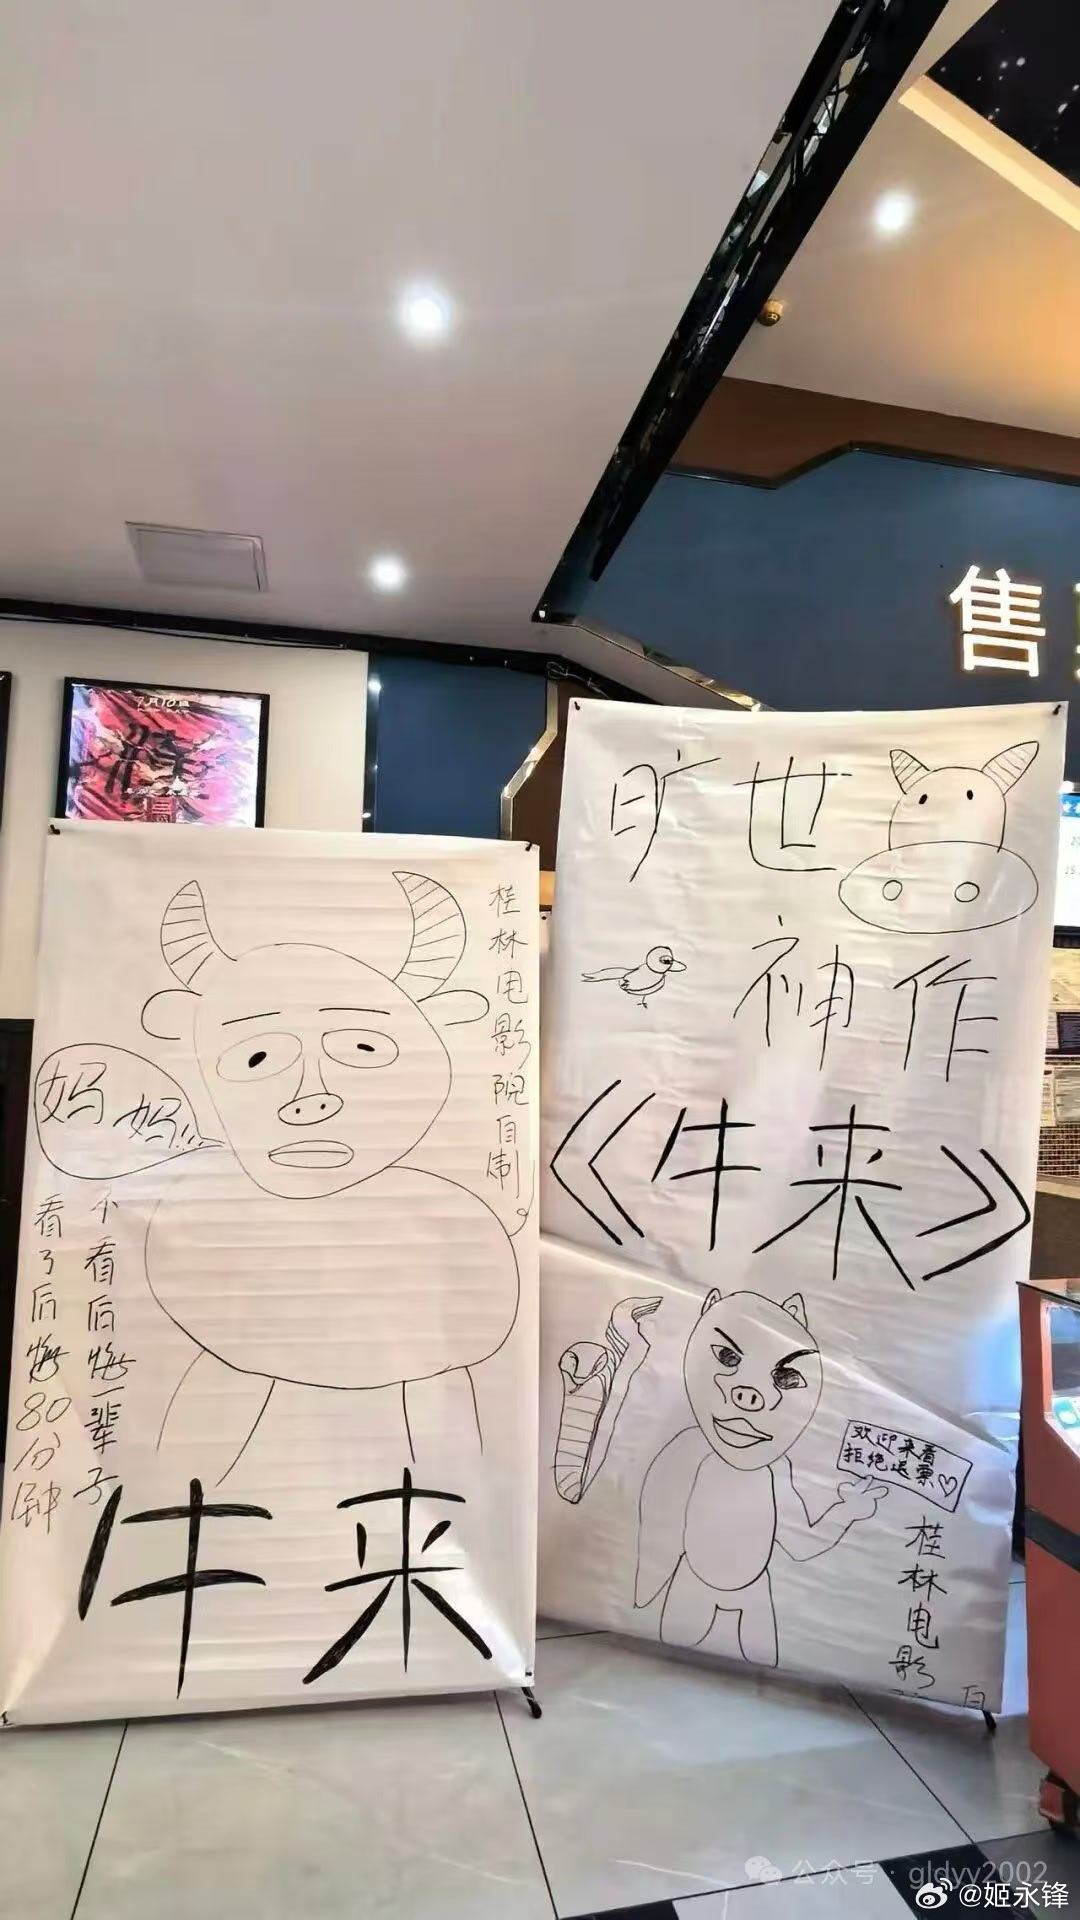 售
7月10日
旷世
神作
《牛来》
欢迎来看
拒绝退票♡
桂林电影
自
桂林电影院自制
妈妈!!!
不看后悔一辈子
看了后悔80分钟
牛来
公众号·gldyy2002
@姬永锋